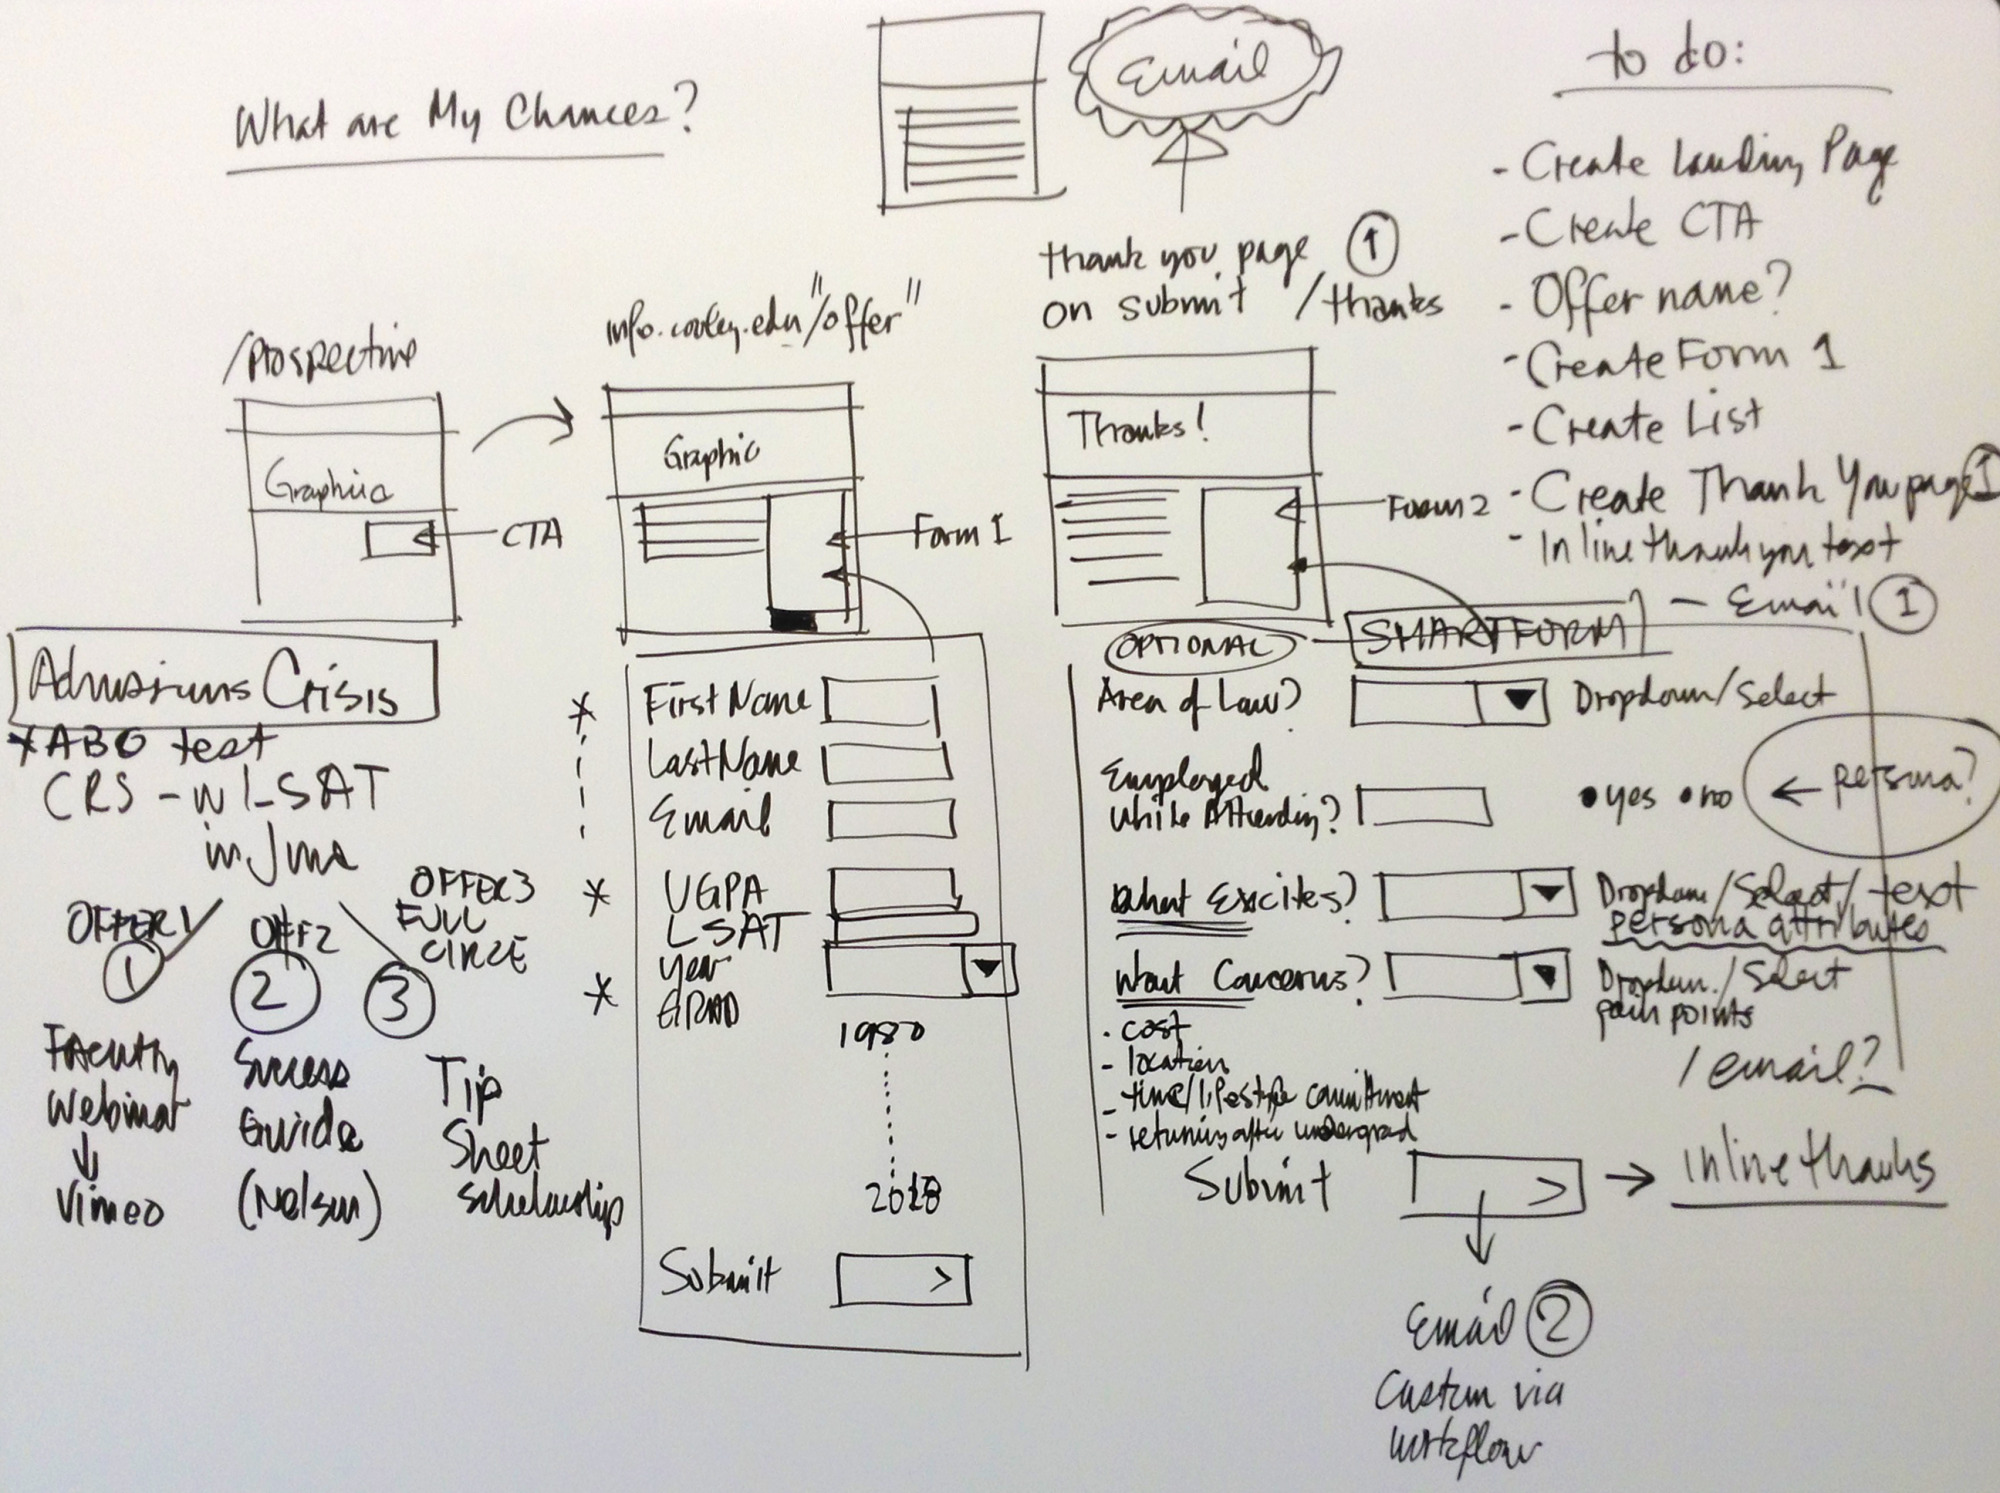 What are My Chances?
Email
to do:
- Create Landing Page
- Create CTA
- Offer name?
- Create Form 1
- Create List
- Create Thank You page 1
- Inline thank you text
- Email 1
/Prospective
Graphic
CTA
info.cooley.edu/"offer"
Graphic
Form 1
thank you page 1
on submit /thanks
Thanks!
Form 2
Admissions Crisis
* ABO test
CRS - w LSAT
in June
OFFER 1
1
Faculty
Webinar
Vimeo
OFF 2
2
Success
Guide
(Nelson)
OFFER 3
FULL
CIRCLE
3
Tip
Sheet
Scholarship
* First Name
Last Name
Email
* UGPA
LSAT
* Year
GRAD
1980
2018
Submit >
OPTIONAL
SMARTFORM
Area of Law? Dropdown/Select
Employed
while Attending? • yes • no ← persona?
What Excites? Dropdown/Select/text
persona attributes
What Concerns? Dropdown/Select
pain points
· cost
- location
- time/lifestyle commitment
- returning after undergrad
/email?
Submit > → inline thanks
Email 2
Custom via
workflow